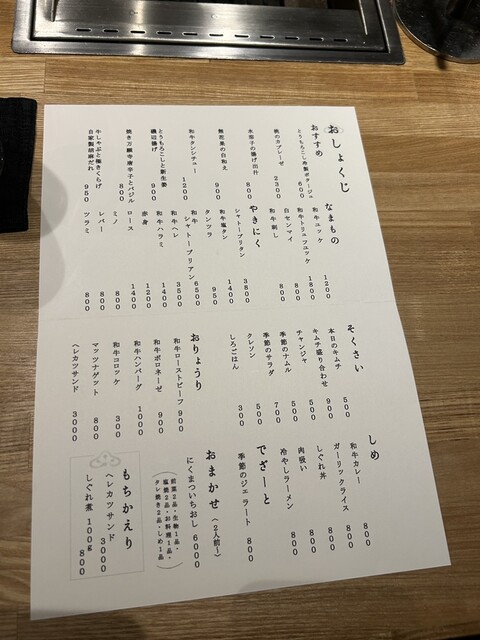 おしょくじ
おすすめ
とうもろこし冷製ポタージュ 600
桃のカプレーゼ 2300
水茄子の揚げ出汁 800
無花果の白和え 900
和牛タンシチュー 1200
とうもろこしと新生姜
磯辺揚げ 900
焼き万願寺唐辛子とバジル 800
牛しゃぶと梅きくらげ
自家製胡麻だれ 950
なまもの
和牛ユッケ 1200
和牛トリュフユッケ 1800
白センマイ 800
和牛刺し 800
やきにく
シャトーブリタン 3800
和牛塩タン 1400
タンツラ 950
和牛
シャトーブリアン 6500
和牛ヘレ 3500
和牛ハラミ 1400
赤身 1200
ロース 1400
ミノ 800
レバー 800
ツラミ 800
そくさい
本日のキムチ 500
キムチ盛り合わせ 900
チャンジャ 500
季節のナムル 700
季節のサラダ 500
クレソン 500
しろごはん 300
おりょうり
和牛ローストビーフ 900
和牛ボロネーゼ 900
和牛ハンバーグ 1000
和牛コロッケ 300
マッツナゲット 800
ヘレカツサンド 3000
しめ
和牛カレー 800
ガーリックライス 800
しぐれ丼 800
肉吸い 800
冷やしラーメン 800
でざーと
季節のジェラート 800
おまかせ (2人前〜)
にくまついちおし 6000
(前菜2品・生物1品・
塩焼2品・お料理1品・
タレ焼き2品・しめ1品)
もちかえり
ヘレカツサンド 3000
しぐれ煮 100g 800